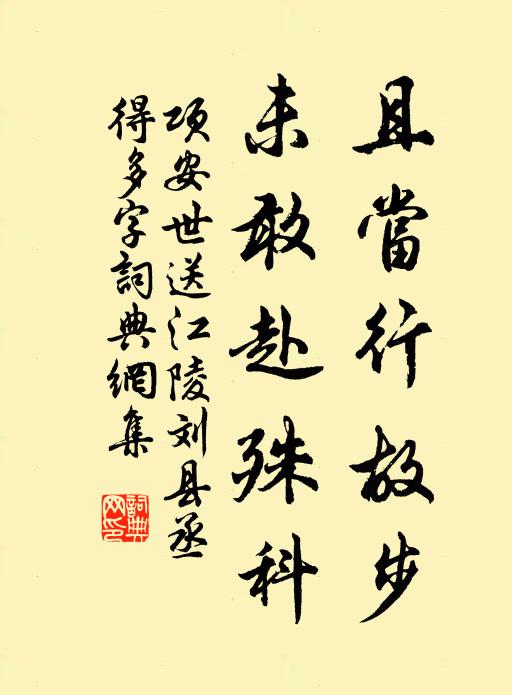 且當行故步
未敢赴殊科
项安世送江陵刘县丞
得多字詞典網集
詞典網印